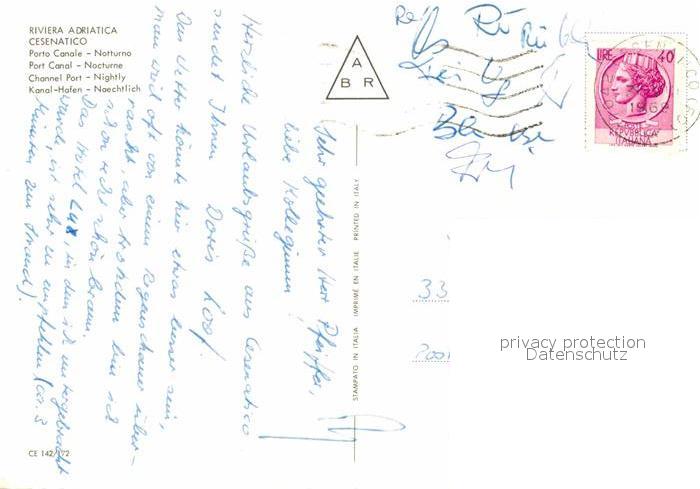 RIVIERA ADRIATICA
CESENATICO
Porto Canale – Notturno
Port Canal – Nocturne
Channel Port – Nightly
Kanal-Hafen – Naechtlich
A
B R
LIRE 40
1968
REPVBBLICA
ITALIANA
Sehr geehrter Herr Pfeiffer,
liebe Kolleginnen!
Herzliche Urlaubsgrüße aus Cesenatico
sendet Ihnen Doris
Das Wetter könnte hier etwas besser sein,
man wird oft von einem Regenschauer über-
rascht, aber trotzdem bin ich
schon recht schön braun.
Das Hotel Lux, in dem ich untergebracht
wurde, ist sehr zu empfehlen (ca. 3
Minuten zum Strand).
STAMPATO IN ITALIA IMPRIMÉ EN ITALIE PRINTED IN ITALY
33
privacy protection
Datenschutz
CE 142/172